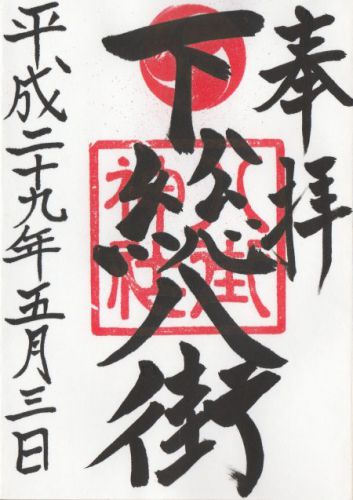 奉拝
下総八街
八街神社
平成二十九年五月三日